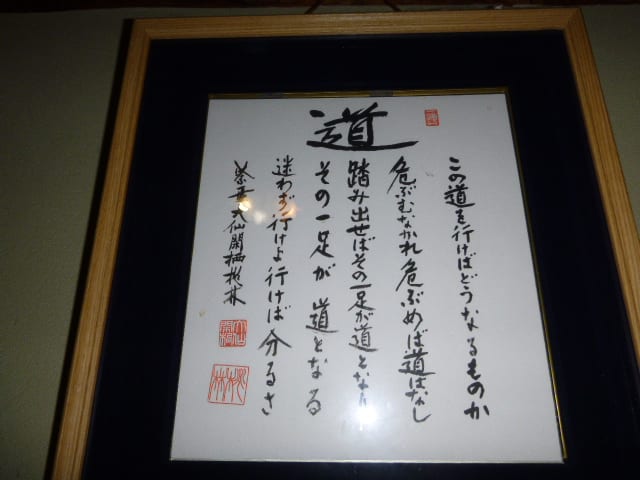 道
この道を行けばどうなるものか
危ぶむなかれ危ぶめば道はなし
踏み出せばその一足が道となり
その一足が 道となる
迷わず行けよ 行けば 分るさ
大仙閑栖